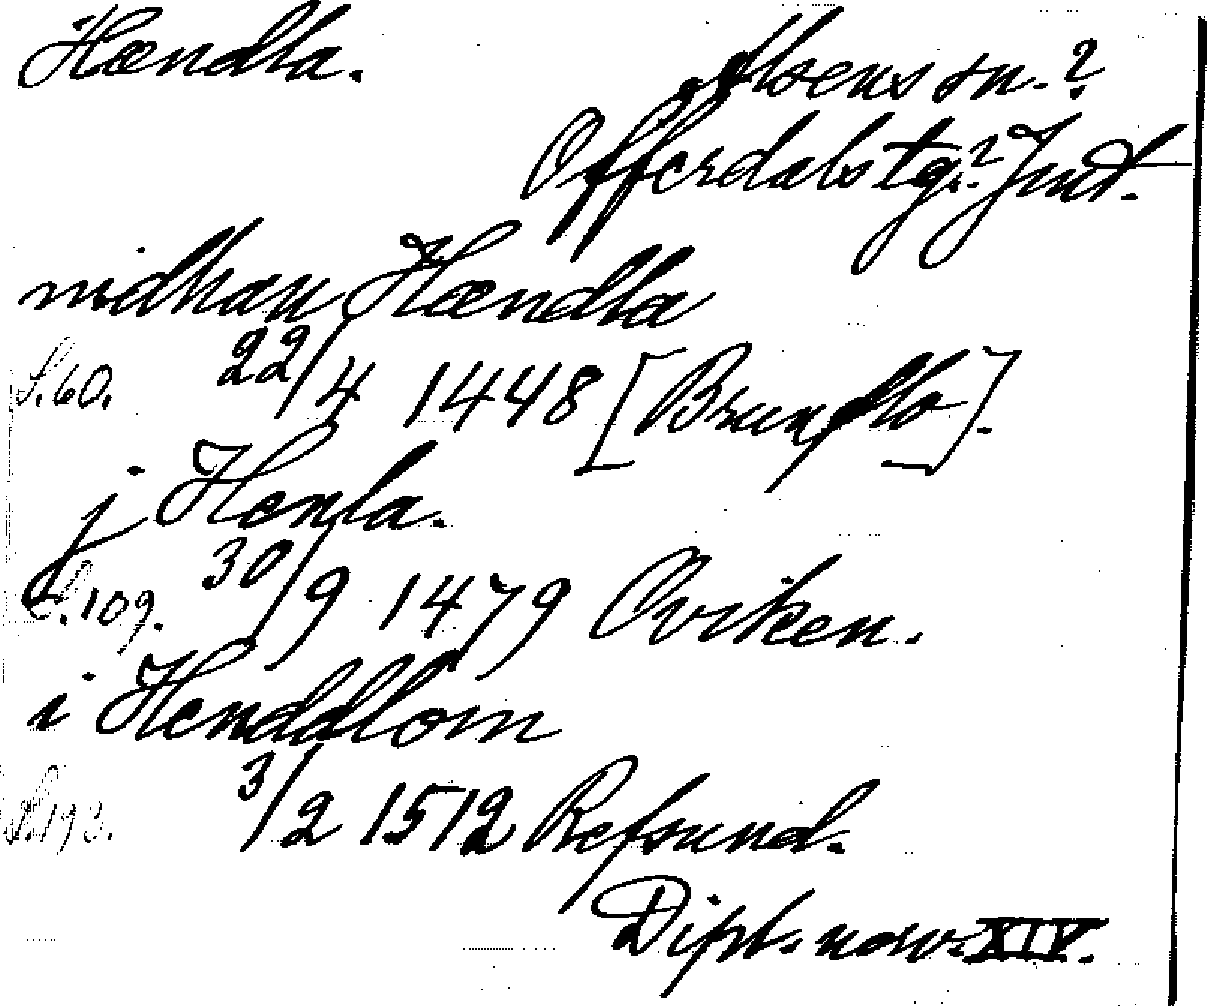 Hændla.
Alsens sn.?
Offerdals tg.? Jmt.
nidhan Hændla
S. 60. 22/4 1448 [Brunflo].
j Henla.
S. 109. 30/9 1479 Oviken.
i Henddlom
S. 193. 3/2 1512 Refsund.
Dipl. norv. XIV.